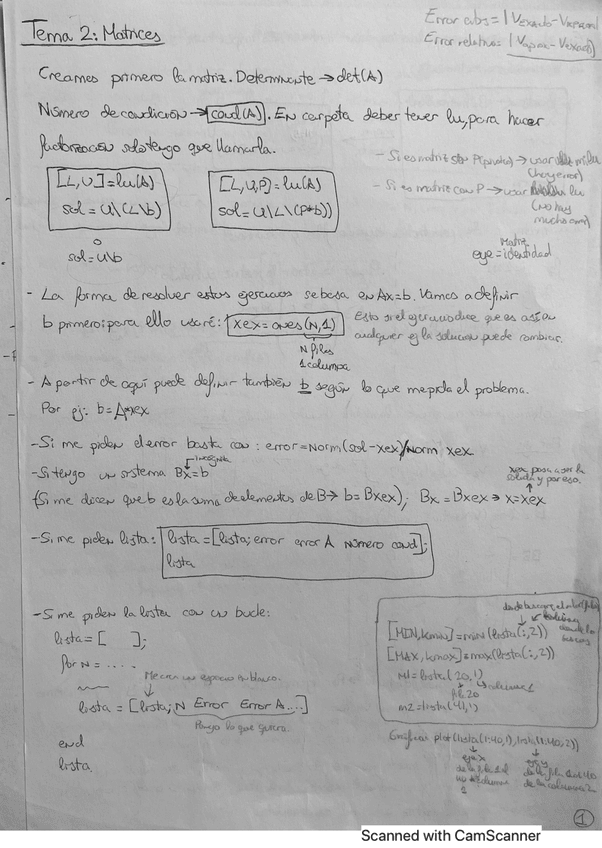 Error abs = |Vexacto - Vaprox|
Error relativo = |Vaprox - Vexacto|
Tema 2: Matrices
Creamos primero la matriz. Determinante → det(A)
Número de condición → cond(A). En carpeta deber tener lu, para hacer
factorización solo tengo que llamarla.
[L,U] = lu(A)
sol = U\(L\b)
[L,U,P] = lu(A)
sol = U\(L\(P*b))
- Si es matriz sin P → usar
(hay error)
- Si es matriz con P → usar lu
(No hay
mucho error)
o
sol = U\b
Matriz
eye = identidad
- La forma de resolver estos ejercicios se basa en Ax=b. Vamos a definir
b primero: para ello usaré: xex = ones(N,1)
Esto si el ejercicio dice que es así en
cualquier ej la solución puede cambiar.
N filas
1 columna
- A partir de aquí puede definir también b según lo que me pida el problema.
Por ej: b = A*xex
- Si me piden el error basta con: error = Norm(sol-xex)/Norm xex
incógnita
- Si tengo un sistema Bx=b
xex pasa a ser la
solución y por eso.
(Si me dicen que b es la suma de elementos de B → b = Bxex); Bx = Bxex → x = xex
- Si me piden lista: lista = [lista; error error A número cond];
lista
- Si me piden la lista con un bucle:
lista = [ ];
for N = ....
Me crea un espacio en blanco.
lista = [lista; N Error Error A ...]
Pongo lo que quiera.
end
lista
[MIN, kmin] = min(lista(:,2))
[MAX, kmax] = max(lista(:,2))
m1 = lista(20,1)
columna 1
fila 20
m2 = lista(41,1)
Gráficas plot(lista(1:40,1), lista(1:40,2))
eje x
eje y
de la fila 1 al
40 de columna
1
de la fila 1 a 40
de la columna 2
1
Scanned with CamScanner